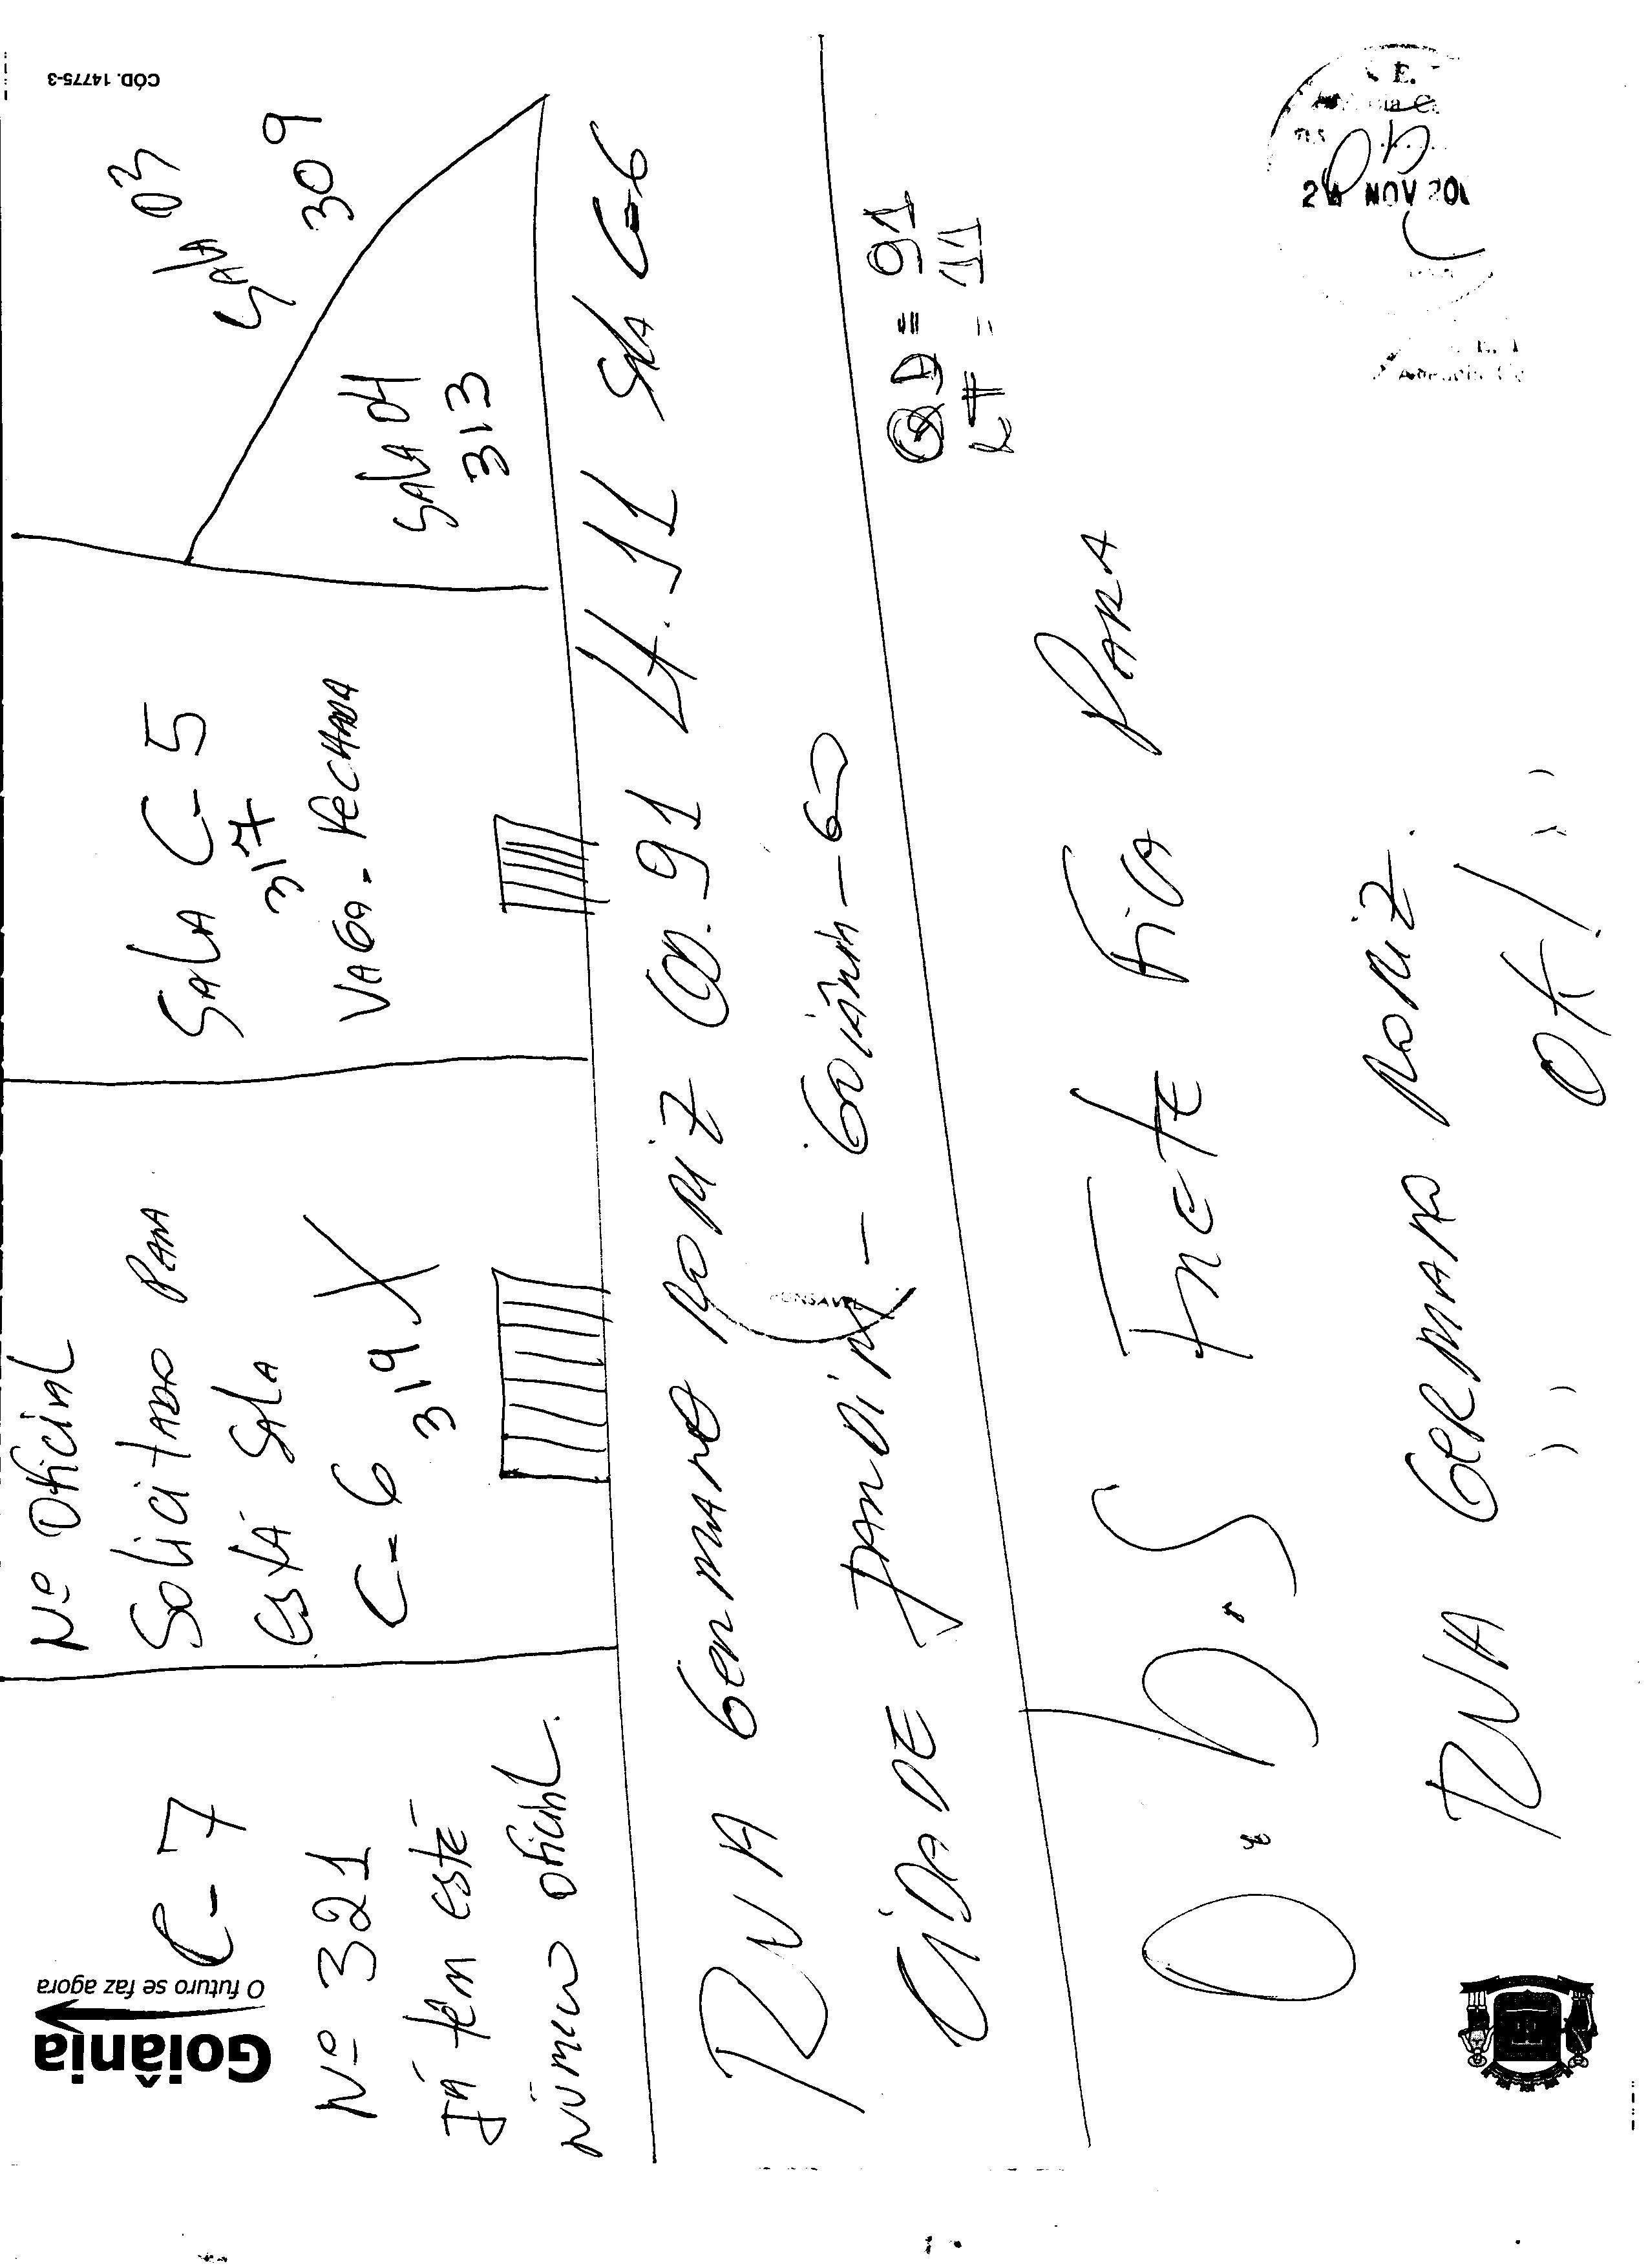 C-7
Nº 321
Já têm esté
número oficial.
Nº Oficial
Solicitado para
Está Sala
C-6
319 X
Sala C-5
317
Vaga - Fechada
Sala 03
309
Sala 04
313
Rua Germano Roriz QD. 91 Lt. 11 Sla C-6
Cidade Jardim - Goiânia-Go
QD = 91
LT = 11
O.b.S Frete Fica Para
Rua Germano Roriz.
'' '' OK!
Goiânia
O futuro se faz agora
CÓD. 14775-3
NOV 20